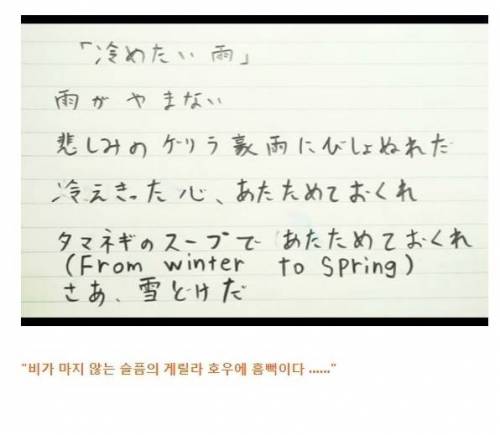 「冷めたい雨」
雨がやまない
悲しみのゲリラ豪雨にびしょぬれだ
冷えきった心、あたためておくれ
タマネギのスープであたためておくれ
(From winter to Spring)
さあ、雪どけだ
"비가 마지 않는 슬픔의 게릴라 호우에 흠뻑이다 ......"